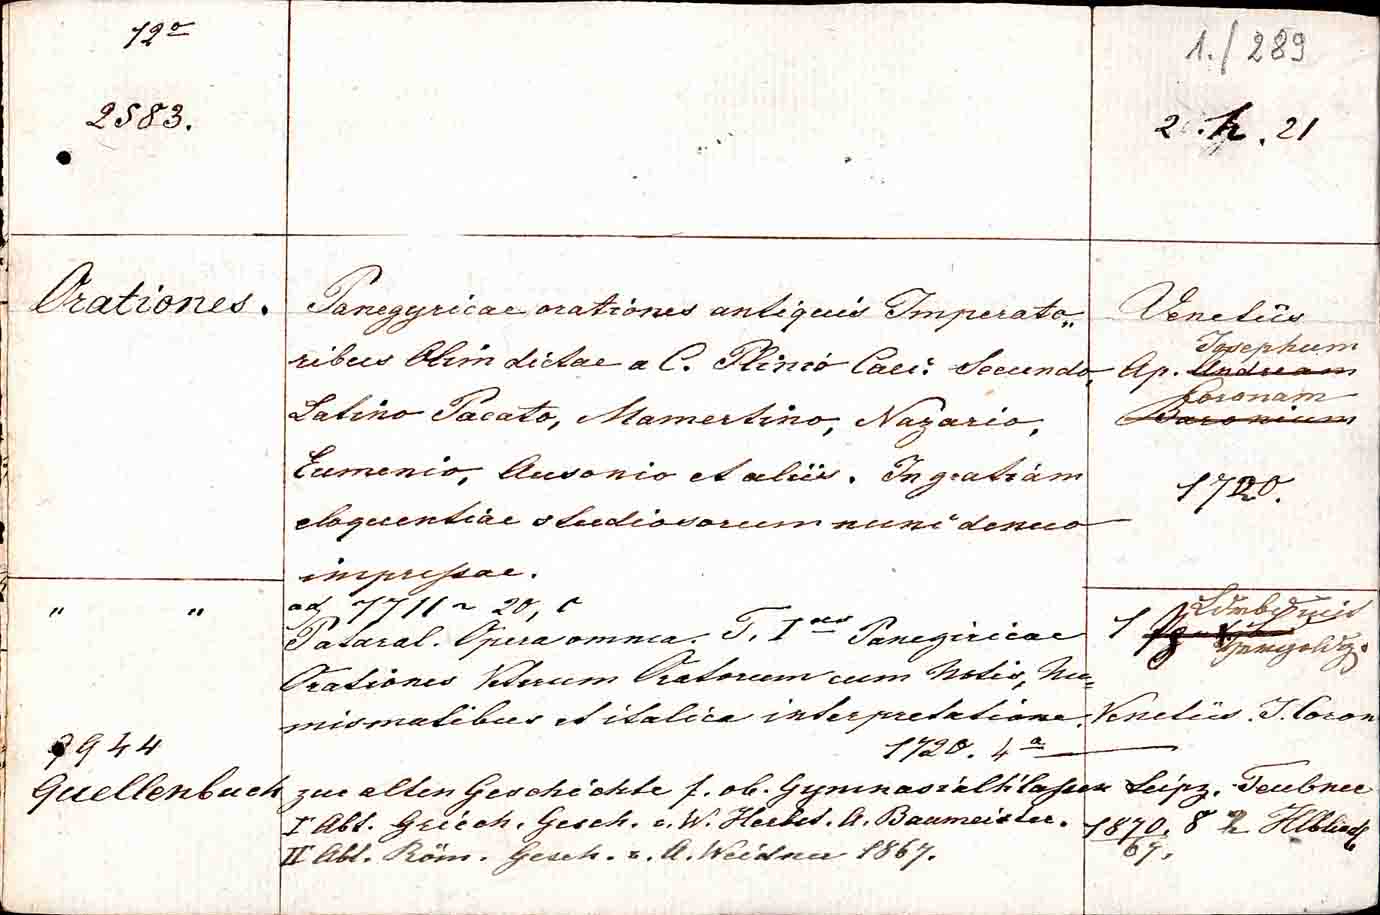 12o
2583.
1./289
2. k. 21
Orationes.
Panegyricae orationes antiquis Imperato„
ribus Olim dictae a C. Plinio Caec: Secundo,
Latino Pacato, Mamertino, Nazario,
Eumenio, Ausonio et aliis. In gratiam
eloquentiae studiosorum nunc denuo
impressae.
Venetiis
Josephum
Ap. Andream
Coronam
Baronium
1720.
" "
ad 7711 ~ 20, c
Pataral. Opera omnia. T. I Panegiricae
Orationes Veterum Oratorum cum Notis, Nu=
mismatibus et italica interpretatione.
Venetiis. J. Coron
1720. 4a
7944
Quellenbuch zur alten Geschichte f. ob. Gymnasialklassen Leipz. Teubner
I Abt. Griech. Gesch. v. W. Herbst. A. Baumeister. 1870. 8 2 Hlblind
II Abt. Röm. Gesch. v. A. Weidner 1867.
67.